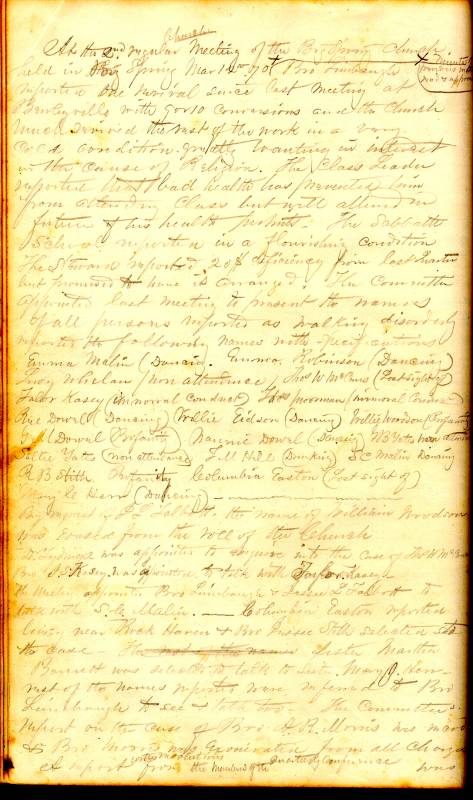 Church
At the 2nd regular Meeting of the Big Spring Church
held in Big Spring Mar 12th 70 Bro Limbaugh
X Minutes
reported one revival since last meeting at
read & approved
Bewleyville with 9 or 10 conversions and the Church
much revived the rest of the work in a very
cold condition greatly wanting in interest
in the cause of Religion. The Class Leader
reported that bad health has prevented him
from attending Class but will attend in
future if his health permits. The Sabbath
School reported in a flourishing condition
The Steward reported 20$ deficiency from last Quarter
but promised to have it arranged. The Committee
appointed last meeting to present the names
of all persons reported as walking disorderly
reported the following names with specifications
Emma Malin (Dancing. Emma Robinson (Dancing)
Lucy Whelan (non attendance, Thos W McCans (Lost sight of)
Tabor Kasey (Immoral Conduct) Thos Moorman (immoral Conduct
Rue Dowell (Dancing) Willie Eidson (Dancing) Willie Woodson (Profanity)
Will Dowell (Profanity) Nannie Dowell (Dancing) WB Yates non attend
Yates (non attendance) Till Hill (Drinking) S C Malin Dancing
R B Stith. Profanity Columbia Easton (Lost sight of)
Mary C Herr (Dancing)
By request of the name of William Woodson
was erased from the roll of the Church
was appointed to inquire into the case of Thos W McCans
Bro J S Kasey was appointed to talk with Tabor Kasey
the Meeting appointed Bros Limbaugh & Jessee L Talbott to
talk with S. C. Malin. Columbia Easton reported
living near Rock Haven & Bro Jessee Stith selected
the case - The rest of the names Sister Martha
Barnett was selected to talk to Sister Mary C. Herr
rest of the names reported were referred to Bro
Limbaugh to see & talk to. The Committee's
report on the case of Bro. A. R. Morris was made
& Bro Morris was Exonerated from all charges
resolutions
A report from the members of the Quarterly Conference was